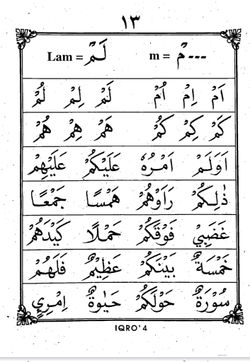 ١٣
Lam = لَمْ m = مْ ---
اَمْ اِمْ اُمْ لَمْ لِمْ لُمْ
كَمْ كِمْ كُمْ هَمْ هِمْ هُمْ
اَوَلَمْ اَمْرُهٗ عَلَيْكُمْ عَلَيْهِمْ
ذٰلِكُمْ رَاَوْهُمْ هَمْسًا جَمْعًا
غَضَبِيْ فَوْقَكُمْ حَمْلًا كَيْدَهُمْ
خَمْسَةٌ بَيْنَكُمْ عَظِيْمٌ فَلَهُمْ
سُوْرَةٌ حَوْلَكُمْ حَيٰوةٌ اِمْرِئٍ
IQRO' 4